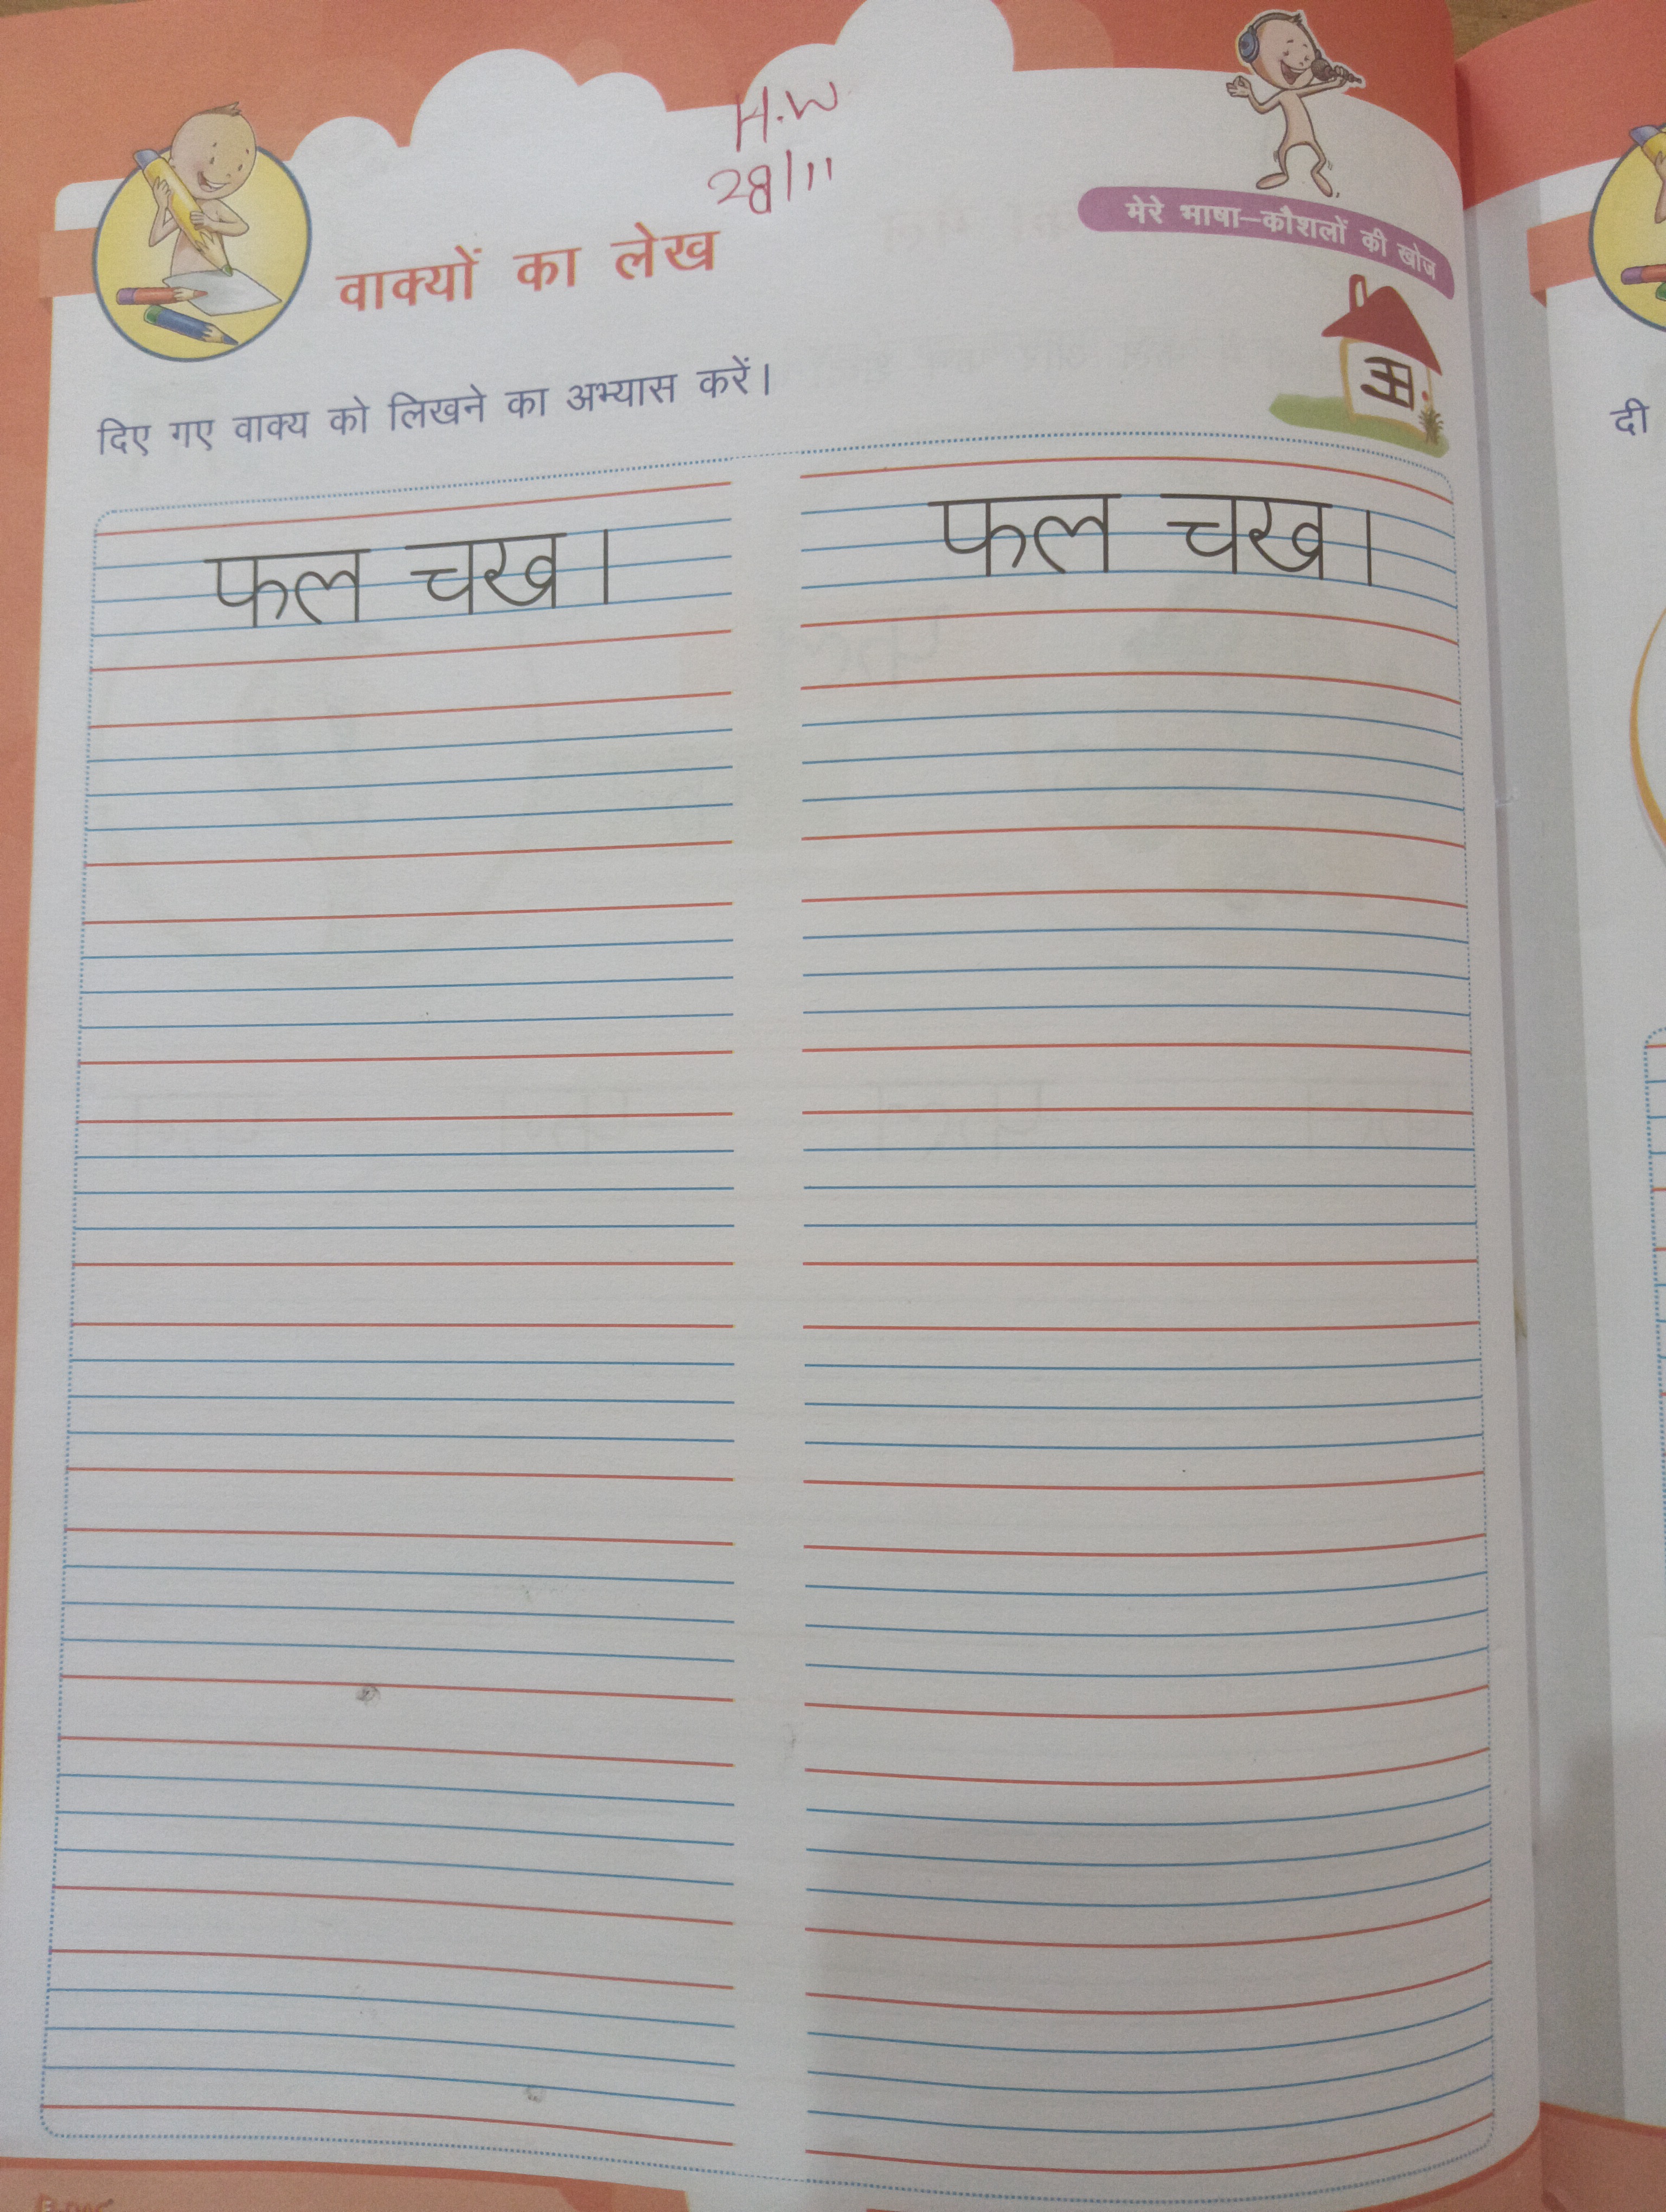 H.W
28/11
मेरे भाषा-कौशलों की खोज
वाक्यों का लेख
दिए गए वाक्य को लिखने का अभ्यास करें।
दी
फल चख। फल चख।